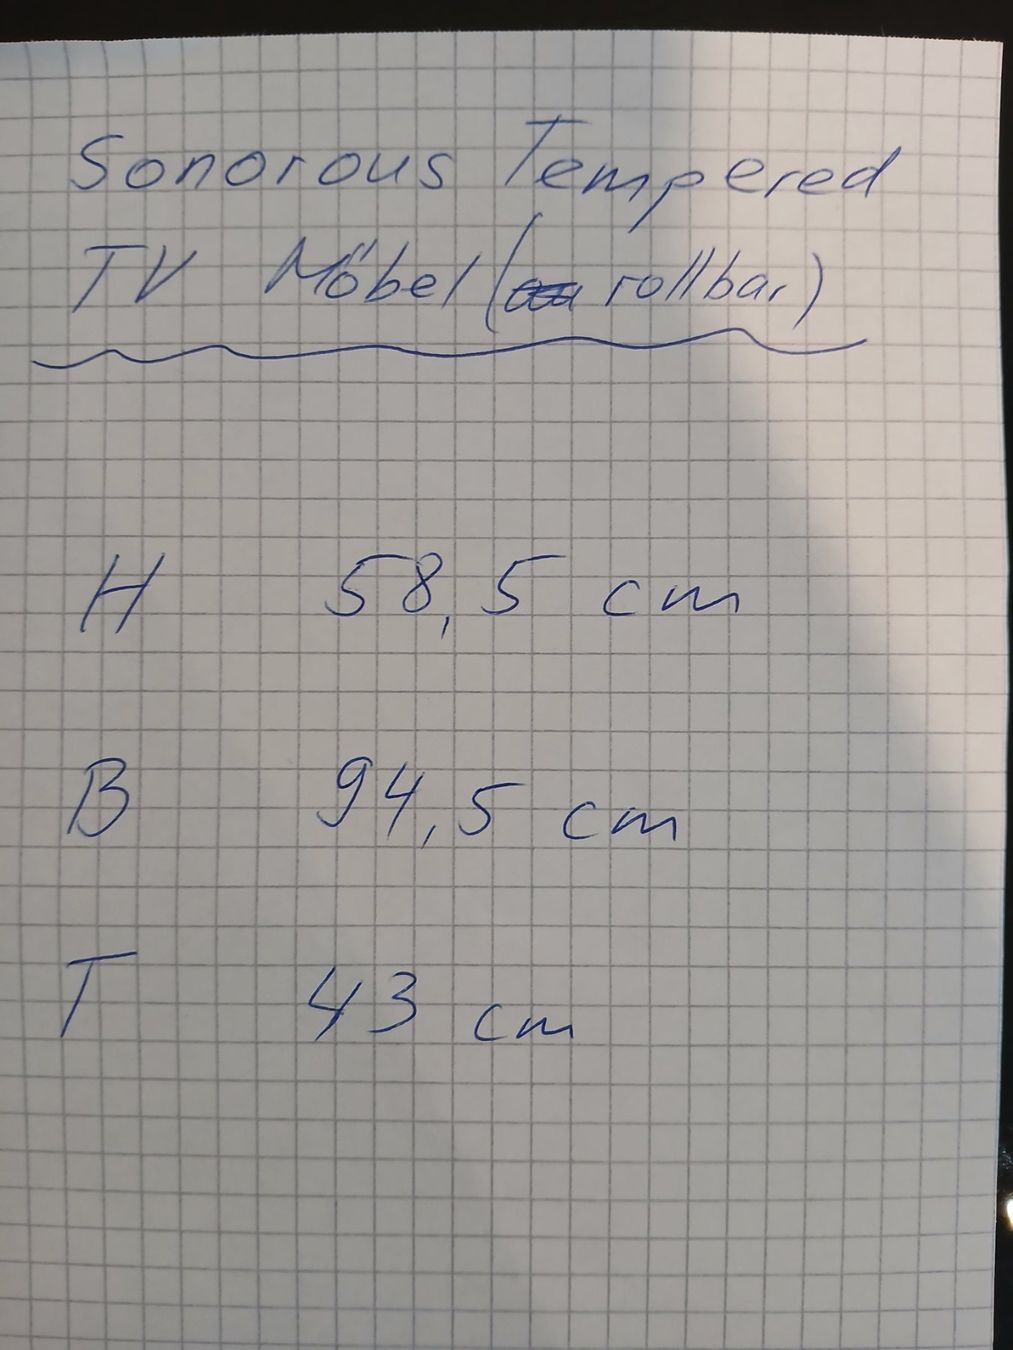 Sonorous Tempered
TV Möbel (rollbar)
H 58,5 cm
B 94,5 cm
T 43 cm